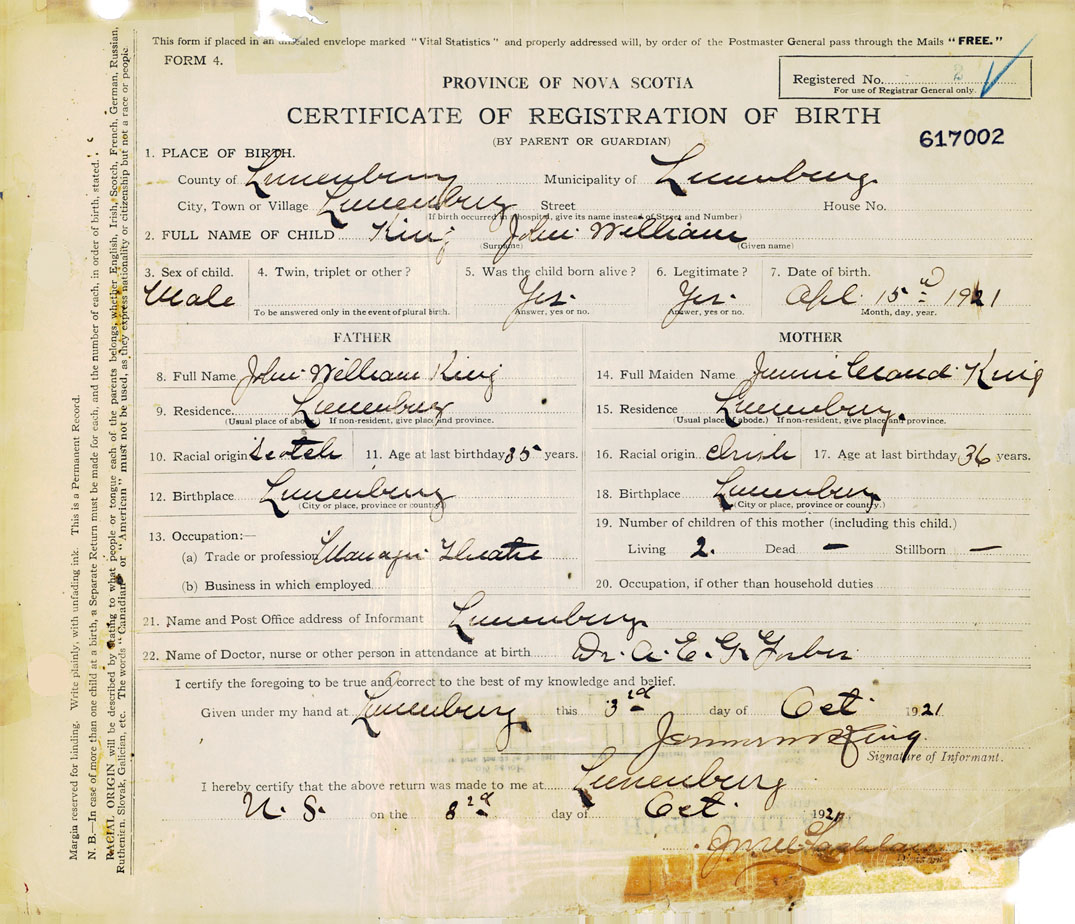 This form if placed in an unsealed envelope marked "Vital Statistics" and properly addressed will, by order of the Postmaster General pass through the Mails "FREE."
FORM 4.
Registered No. 2
For use of Registrar General only.
PROVINCE OF NOVA SCOTIA
CERTIFICATE OF REGISTRATION OF BIRTH
(BY PARENT OR GUARDIAN)
617002
1. PLACE OF BIRTH.
County of Lunenburg Municipality of Lunenburg
City, Town or Village Lunenburg Street House No.
(If birth occurred in a hospital, give its name instead of Street and Number)
2. FULL NAME OF CHILD King John William
(Surname) (Given name)
3. Sex of child. 4. Twin, triplet or other? 5. Was the child born alive? 6. Legitimate? 7. Date of birth.
Male Yes. Yes. Apl. 15 1921
To be answered only in the event of plural birth. Answer, yes or no. Answer, yes or no. Month, day, year.
FATHER MOTHER
8. Full Name John William King 14. Full Maiden Name King
9. Residence. Lunenburg 15. Residence Lunenburg.
(Usual place of abode.) If non-resident, give place and province. (Usual place of abode.) If non-resident, give place and province.
10. Racial origin Scotch 11. Age at last birthday 35 years. 16. Racial origin Irish 17. Age at last birthday 36 years.
12. Birthplace Lunenburg 18. Birthplace Lunenburg
(City or place, province or country.) (City or place, province or country.)
13. Occupation:— 19. Number of children of this mother (including this child.)
(a) Trade or profession Manager Theatre Living 2. Dead — Stillborn —
(b) Business in which employed 20. Occupation, if other than household duties
21. Name and Post Office address of Informant Lunenburg
22. Name of Doctor, nurse or other person in attendance at birth Dr. A. E. G. Forbes
I certify the foregoing to be true and correct to the best of my knowledge and belief.
Given under my hand at Lunenburg this 3rd day of Oct. 1921
King.
Signature of Informant.
I hereby certify that the above return was made to me at Lunenburg
N. S. on the day of Oct. 1921
Margin reserved for binding. Write plainly, with unfading ink. This is a Permanent Record.
N. B.—In case of more than one child at a birth, a Separate Return must be made for each, and the number of each, in order of birth, stated.
RACIAL ORIGIN will be described by stating to what people or tongue each of the parents belongs, whether English, Irish, Scotch, French, German, Russian,
Ruthenian, Slovak, Galician, etc. The words "Canadian" or "American" must not be used, as they express nationality or citizenship but not a race or people.